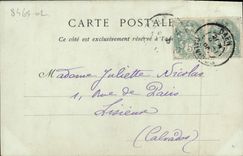 8464-02
CARTE POSTALE
Ce côté est exclusivement réservé à l'adresse
Madame Juliette Nicolas
1, Rue de Paris
Lisieux
(Calvados)